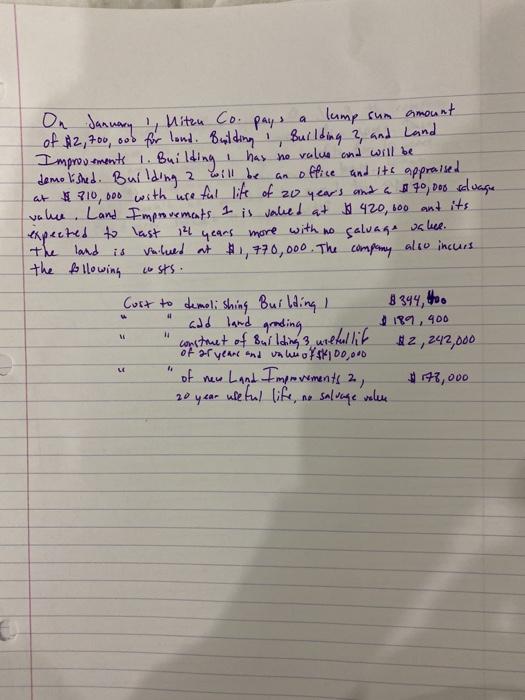 On January 1, Mitzu Co. pays a lump sum amount
of $2,700,000 for land. Building 1, Building 2, and Land
Improvements 1. Building 1 has no value and will be
demolished. Building 2 will be an office and its appraised
at $ 810,000 with useful life of 20 years and a $ 70,000 salvage
value. Land Improvements 1 is valued at $ 420,000 and its
expected to last 12 years more with no salvage value.
The land is valued at $1,770,000. The company also incurs
the following costs.
Cost to demolishing Building 1 $ 344,400
" " add land grading $ 189,400
" " construct of Building 3, useful lif $2,242,000
of 25 years and value of $400,000
" " of new Land Improvements 2, $ 178,000
20 year useful life, no salvage value